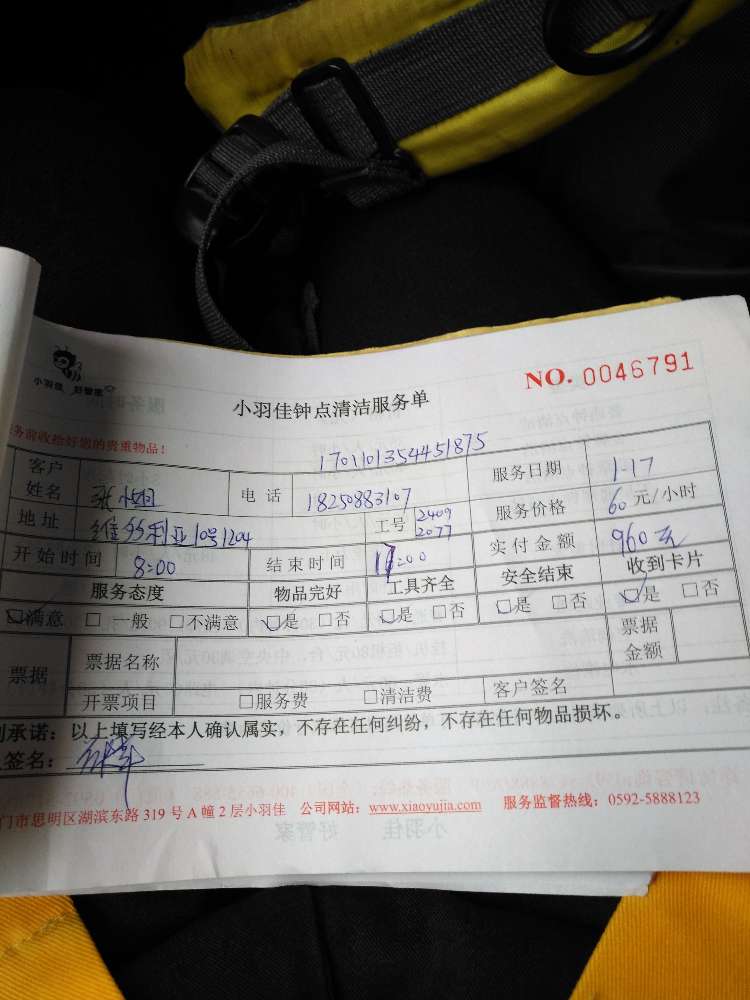 小羽佳 好管家
小羽佳钟点清洁服务单
NO. 0046791
务前收拾好您的贵重物品!
1701101354451875
客户姓名 张小姐 电话 18250883107 服务日期 1-17
地址 维多利亚10号1204 工号 2409 2077 服务价格 60元/小时
开始时间 8:00 结束时间 :00 实付金额 960元
服务态度 物品完好 工具齐全 安全结束 收到卡片
☑满意 □一般 □不满意 ☑是 □否 ☑是 □否 ☑是 □否 ☑是 □否
票据 票据名称 票据金额
开票项目 □服务费 □清洁费 客户签名
承诺:以上填写经本人确认属实,不存在任何纠纷,不存在任何物品损坏。
签名:
门市思明区湖滨东路319号A幢2层小羽佳 公司网站:www.xiaoyujia.com 服务监督热线:0592-5888123